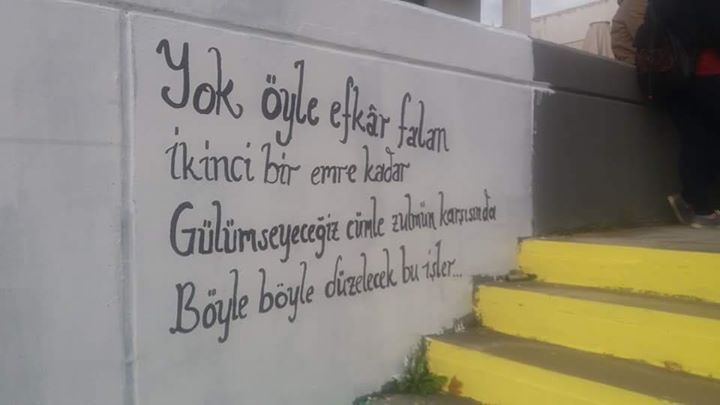 Yok öyle efkâr falan
İkinci bir emre kadar
Gülümseyeceğiz cümle zulmün karşısında
Böyle böyle düzelecek bu işler...